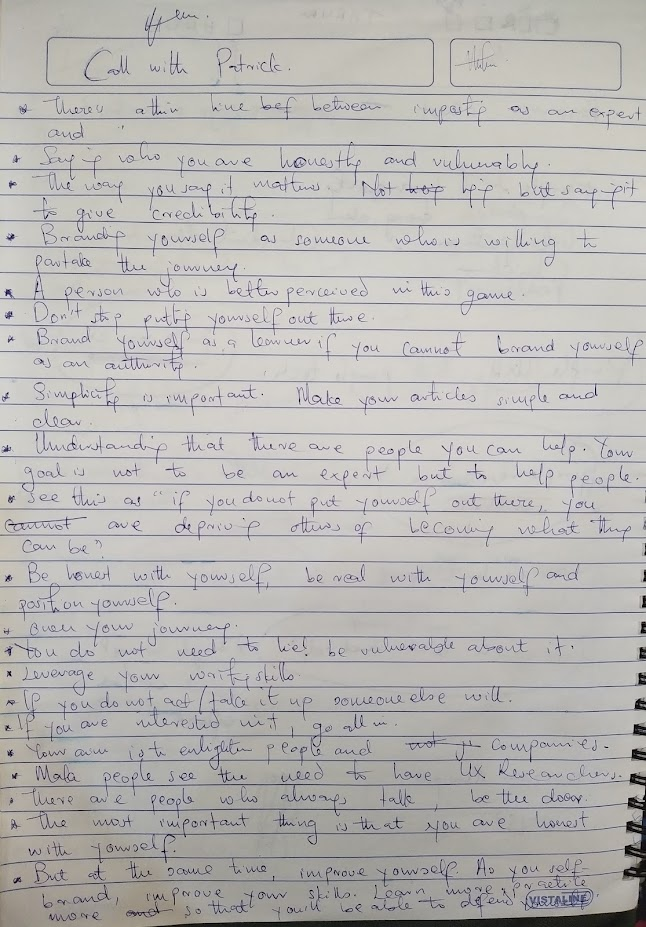 Call with Patrick.
* There's a thin line bef between imposting as an expert
and "
* Saying who you are honestly and vulnerably.
* The way you say it matters. Not lying but saying it
to give credibility.
* Branding yourself as someone who is willing to
partake the journey.
* A person who is better perceived in this game.
* Don't stop putting yourself out there.
* Brand yourself as a learner if you cannot brand yourself
as an authority.
* Simplicity is important. Make your articles simple and
clear.
* Understanding that there are people you can help. Your
goal is not to be an expert but to help people.
* See this as "if you do not put yourself out there, you
cannot are depriving others of becoming what they
can be"
* Be honest with yourself, be real with yourself and
position yourself.
* your journey.
* You do not need to lie! be vulnerable about it.
* Leverage your writing skills.
* If you do not act / take it up someone else will.
* If you are interested in it, go all in.
* Your aim is to enlighten people and not companies.
* Make people see the need to have UX Researchers.
* There are people who always talk, be the doer.
* The most important thing is that you are honest
with yourself.
* But at the same time, improve yourself. As you self-
brand, improve your skills. Learn more, practice
more and so that you'll be able to defend
VISTALINE